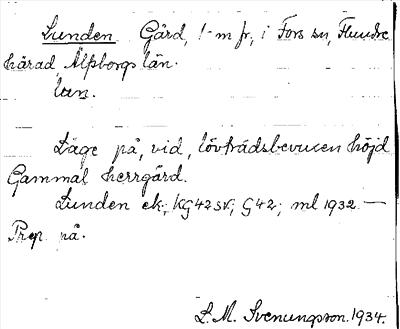 Lunden Gård, 1 m fr, i Fors sn, Flundre
härad, Älfsborgs län.
lun.
Läge på, vid, lövträdsbevuxen höjd
Gammal herrgård.
Lunden ek, KG42SV; G42; ml 1932 —
Prep på.
L. M. Svenungsson. 1934.